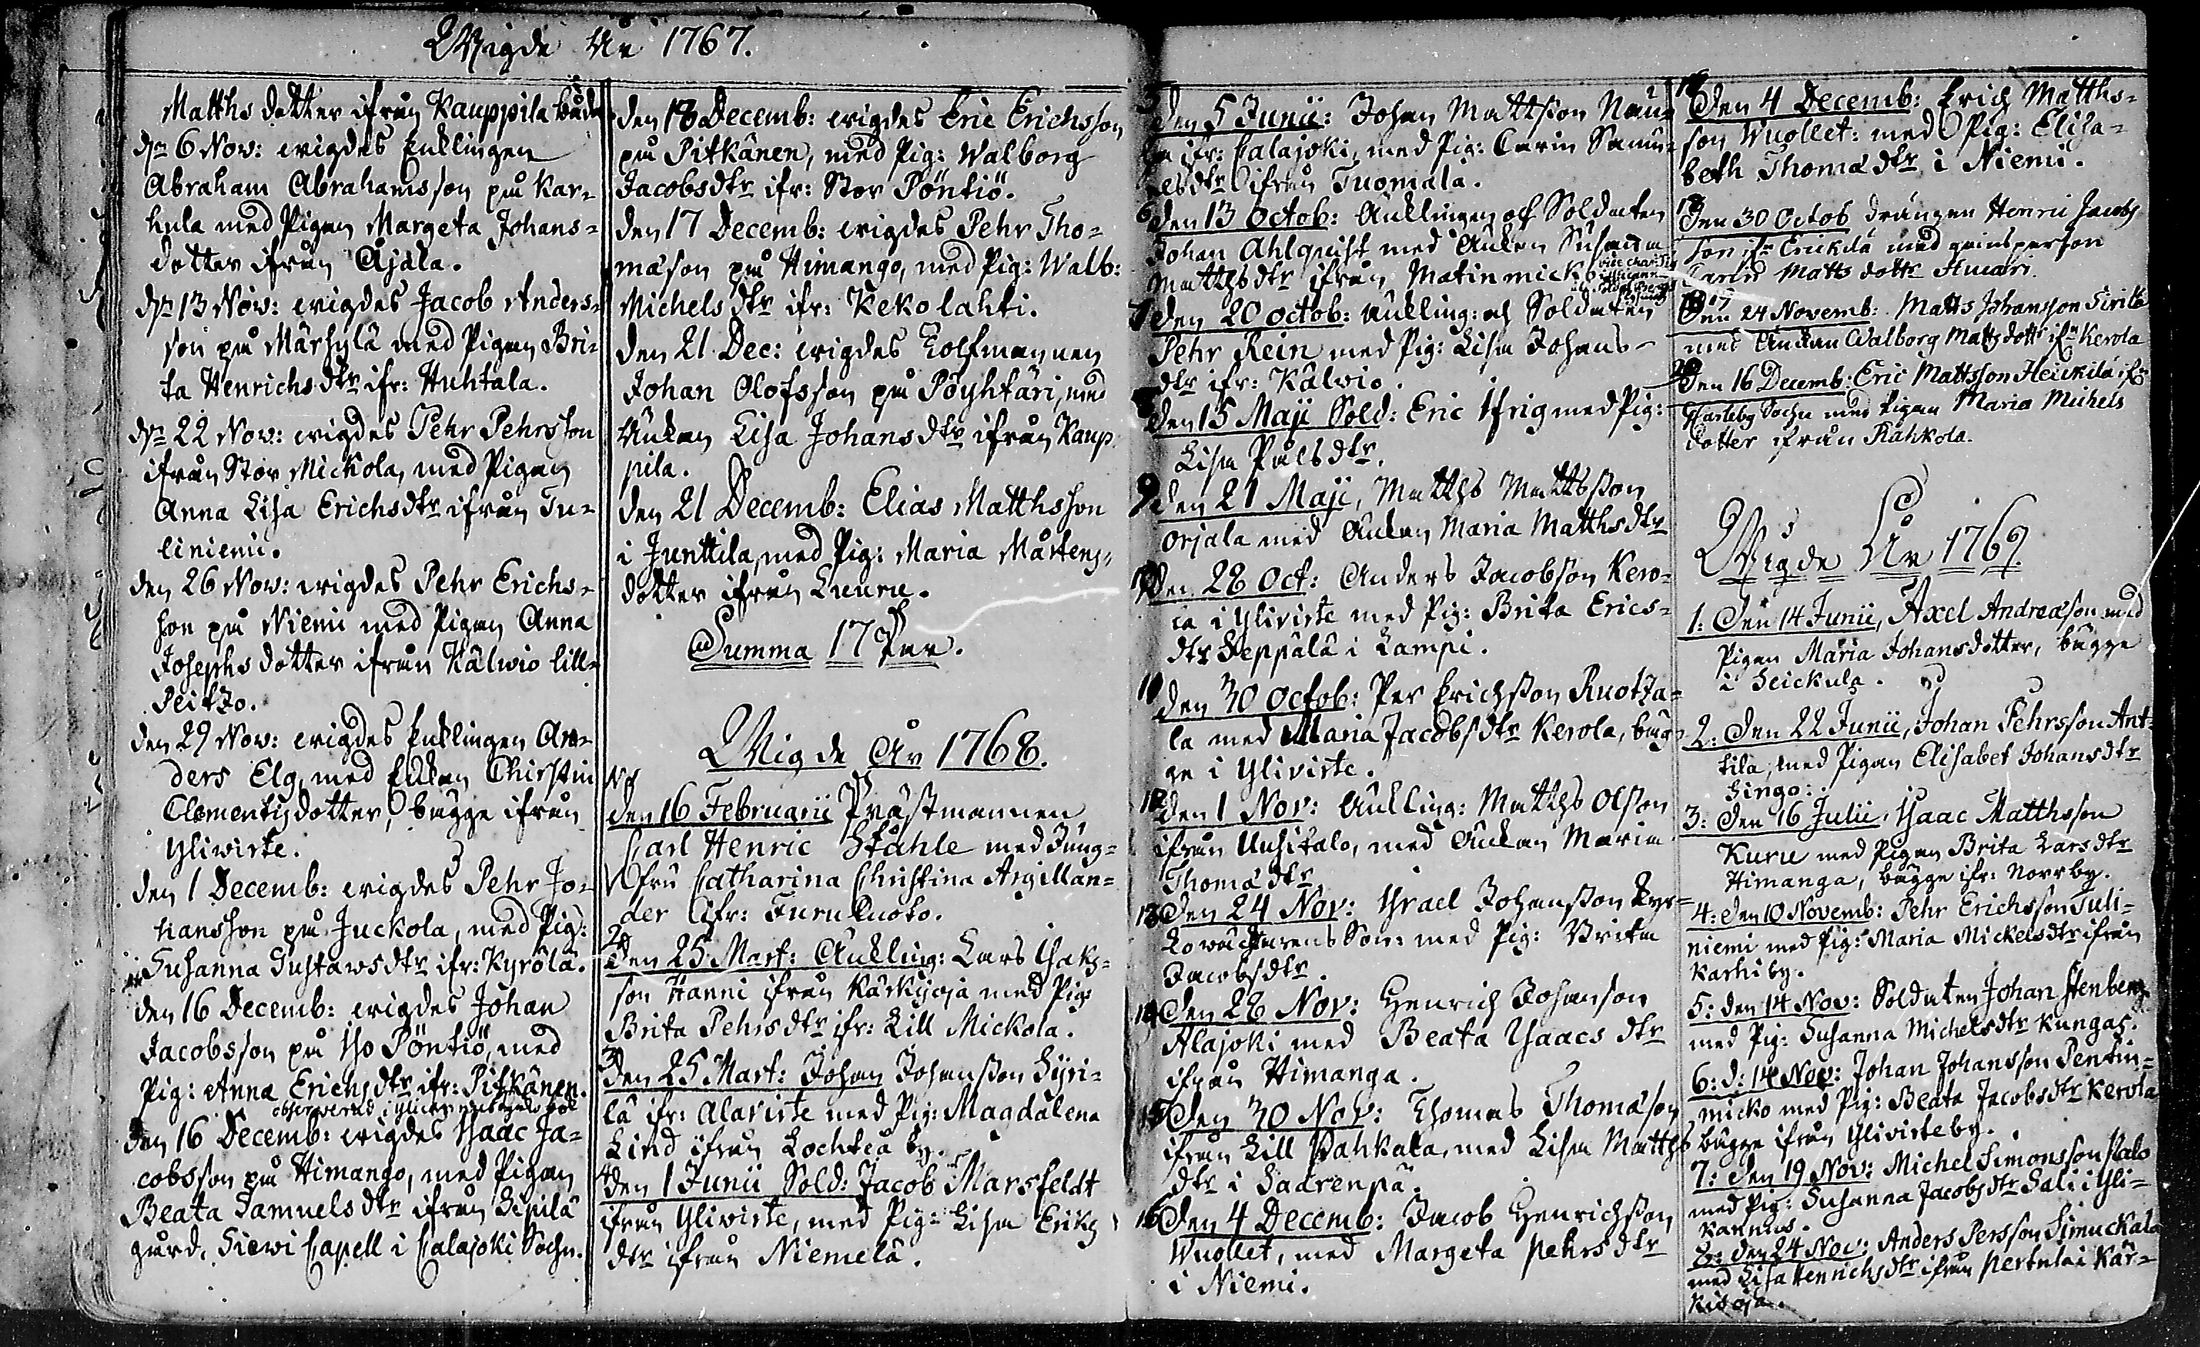 Wigde År 1767.
Matths dotter ifrån Kauppila båda
dn 6 Nov: wigdes Enklingen
Abraham Abrahamsson på Kar-
hula med Pigan Margeta Johans-
dotter ifrån Ajala.
dn 13 Nov: wigdes Jacob Anders-
son på Märsylä med Pigan Bri-
ta Henrichs dtr ifr: Huhtala.
dn 22 Nov: wigdes Pehr Pehrsson
ifrån Stor Mickola, med Pigan
Anna Lisa Erichsdtr ifrån Tu-
liniemi.
den 26 Nov: wigdes Pehr Erichs-
son på Niemi med Pigan Anna
Josephs dotter ifrån Kälwio lill-
Peitzo.
den 29 Nov: wigdes Enklingen An-
ders Elg, med Enkan Chirstin
Clementzdotter, bägge ifrån
Yliwirte.
den 1 Decemb: wigdes Pehr Jo-
hansson på Juckola, med Pig:
Susanna Gustawsdtr ifr: Kyrölä.
den 16 Decemb: wigdes Johan
Jacobsson på Iso Pöntiö, med
Pig: Anna Erichsdtr ifr: Pitkänen.
den 16 Decemb: wigdes Isaac Ja-
cobsson på Himango, med Pigan
Beata Samuelsdtr ifrån Sipilä
gård, Siewi Capell i Calajoki Sochn.
den 13 Decemb: wigdes Eric Erichsson
på Pitkänen, med Pig: Walborg
Jacobsdtr ifr: Stor Pöntiö.
den 17 Decemb: wigdes Pehr Tho-
mæson på Himango, med Pig: Walb:
Michels dtr ifr: Kekolahti.
den 21 Dec: wigdes Tolfmannen
Johan Olofsson på Pöyhtäri, med
Enkan Lisa Johansdtr ifrån Kaup
pila.
den 21 Decemb: Elias Matthsson
i Junttila, med Pig: Maria Mårtens-
dotter ifrån Leuru.
Summa 17 Par.
Wigde År 1768.
No 1
den 16 Februarii Prästmannen
Carl Henric Ståhle med Jung-
fru Catharina Christina Argillan-
der ifr: Turuluoto.
2
Den 25 Mart: Enkling: Lars Isaks-
son Hanni ifrån Kärkisoja med Pig:
Brita Pehrsdtr ifr: Lill Mickola.
3
Den 25 Mart: Johan Johansson Syri-
lä ifr: Alavirte med Pig: Magdalena
Lind ifrån Lochteå by.
4
Den 1 Junii Sold: Jacob Marsfeldt
ifrån Yliwirte, med Pig: Lisa Eriks
dtr ifrån Niemelä.
5
Den 5 Junii: Johan Mattsson Nau-
ha ifr: Calajoki, med Pig: Carin Samu-
elsdtr ifrån Tuomala.
6
Den 13 Octob: Enklingen och Soldaten
Johan Ahlquist med Enkan Susanna
Matthsdtr ifrån Matinmicko
7
Den 20 Octob: Enkling: och Soldaten
Pehr Rein med Pig: Lisa Johans-
dtr ifr: Kälwio.
8
Den 15 Maji Sold: Eric Ifrig med Pig:
Lisa Pålsdtr.
9
Den 21 Maji, Matths Mattsson
Orjala med Enkan Maria Matthsdtr
10
Den 28 Oct: Anders Jacobson Kero-
la i Ylivirte med Pig: Brita Erics-
dtr Seppälä i Lampi.
11
Den 30 Octob: Per Erichsson Ruotza-
la med Maria Jacobsdtr Kerola, bäg-
ge i Ylivirte.
12
Den 1 Nov: Enkling: Matths Olsson
ifrån Uusitalo, med Enkan Maria
Thomædtr
13
Den 24 Nov: Israel Johansson Kyr-
kowäcktarens Son: med Pig: Brita
Jacobsdtr.
14
Den 28 Nov: Henrich Johanson
Alajoki med Beata Isaacs dtr
ifrån Himanga.
15
Den 30 Nov: Thomas Thomæson
ifrån Lill Pahkala, med Lisa Matths
dtr i Saarenpä.
16
Den 4 Decemb: Jacob Henrichsson
Wuollet, med Margeta Pehrsdtr
i Niemi.
17
Den 4 Decemb: Erich Matths-
son Wuollet: med Pig: Elisa-
beth Thomædtr i Niemi.
18
Den 30 Octob drängen Henric Jacobs
son ifr Erickilä med qwinsperson
Carin Matts dotter
19
Den 24 Novemb: Matts Johansson Sirilä
med Enckan Walborg Mattsdotter ifn Kerola
20
Den 16 Decemb: Eric Mattsson Heickilä ifrn
Carleby Sochn med Pigan Maria Michels
dotter ifrån Råhkola.
Wigde År 1769
1: Den 14 Junii, Axel Andreæson med
Pigan Maria Johansdotter, bägge
i Heickula.
2: Den 22 Junii, Johan Pehrsson Ant-
tila, med Pigan Elisabet Johansdtr
Hingo:
3: Den 16 Julii, Isaac Matthsson
Kuru med Pigan Brita Larsdtr
Himanga, bägge ifr: Norrby.
4: Den 10 Novemb: Pehr Erichsson Tuli-
niemi med Pig: Maria Mickelsdtr ifrån
Karhiby.
5: Den 14 Nov: Soldaten Johan Stenberg
med Pig: Susanna Michelsdtr Kungas.
6: D: 14 Nov: Johan Johansson Pentin-
micko med Pig: Beata Jacobsdtr Kerola
bägge ifrån Ylivirteby.
7: Den 19 Nov: Michel Simonsson Palo
med Pig: Susanna Jacobsdtr Sali i Yli-
kannus.
8: Den 24 Nov: Anders Persson Simuckala
med Lisa Henrichsdtr ifrån Pertula i Kär-
kisoja.